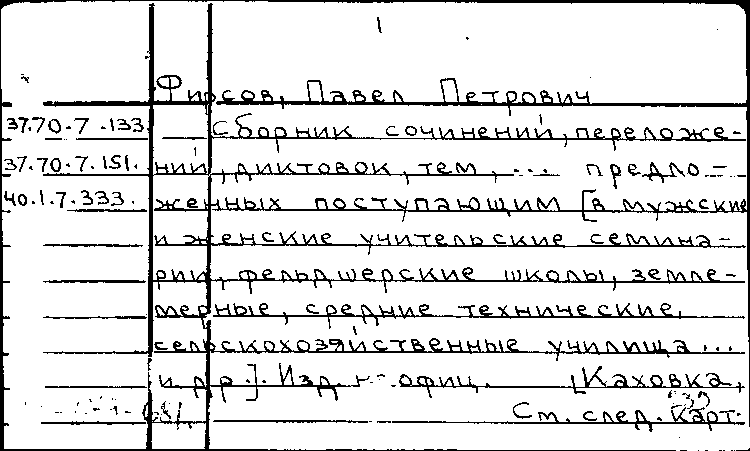 1
Фирсов, Павел Петрович
37.70.7.133. Сборник сочинений, переложе-
37.70.7.151. ний, диктовок, тем, ... предло-
40.1.7.333. женных поступающим [в мужские
и женские учительские семина-
рии, фельдшерские школы, земле-
мерные, средние технические,
сельскохозяйственные училища ...
и др.]. Изд. офиц. [Каховка,
См. след. карт.